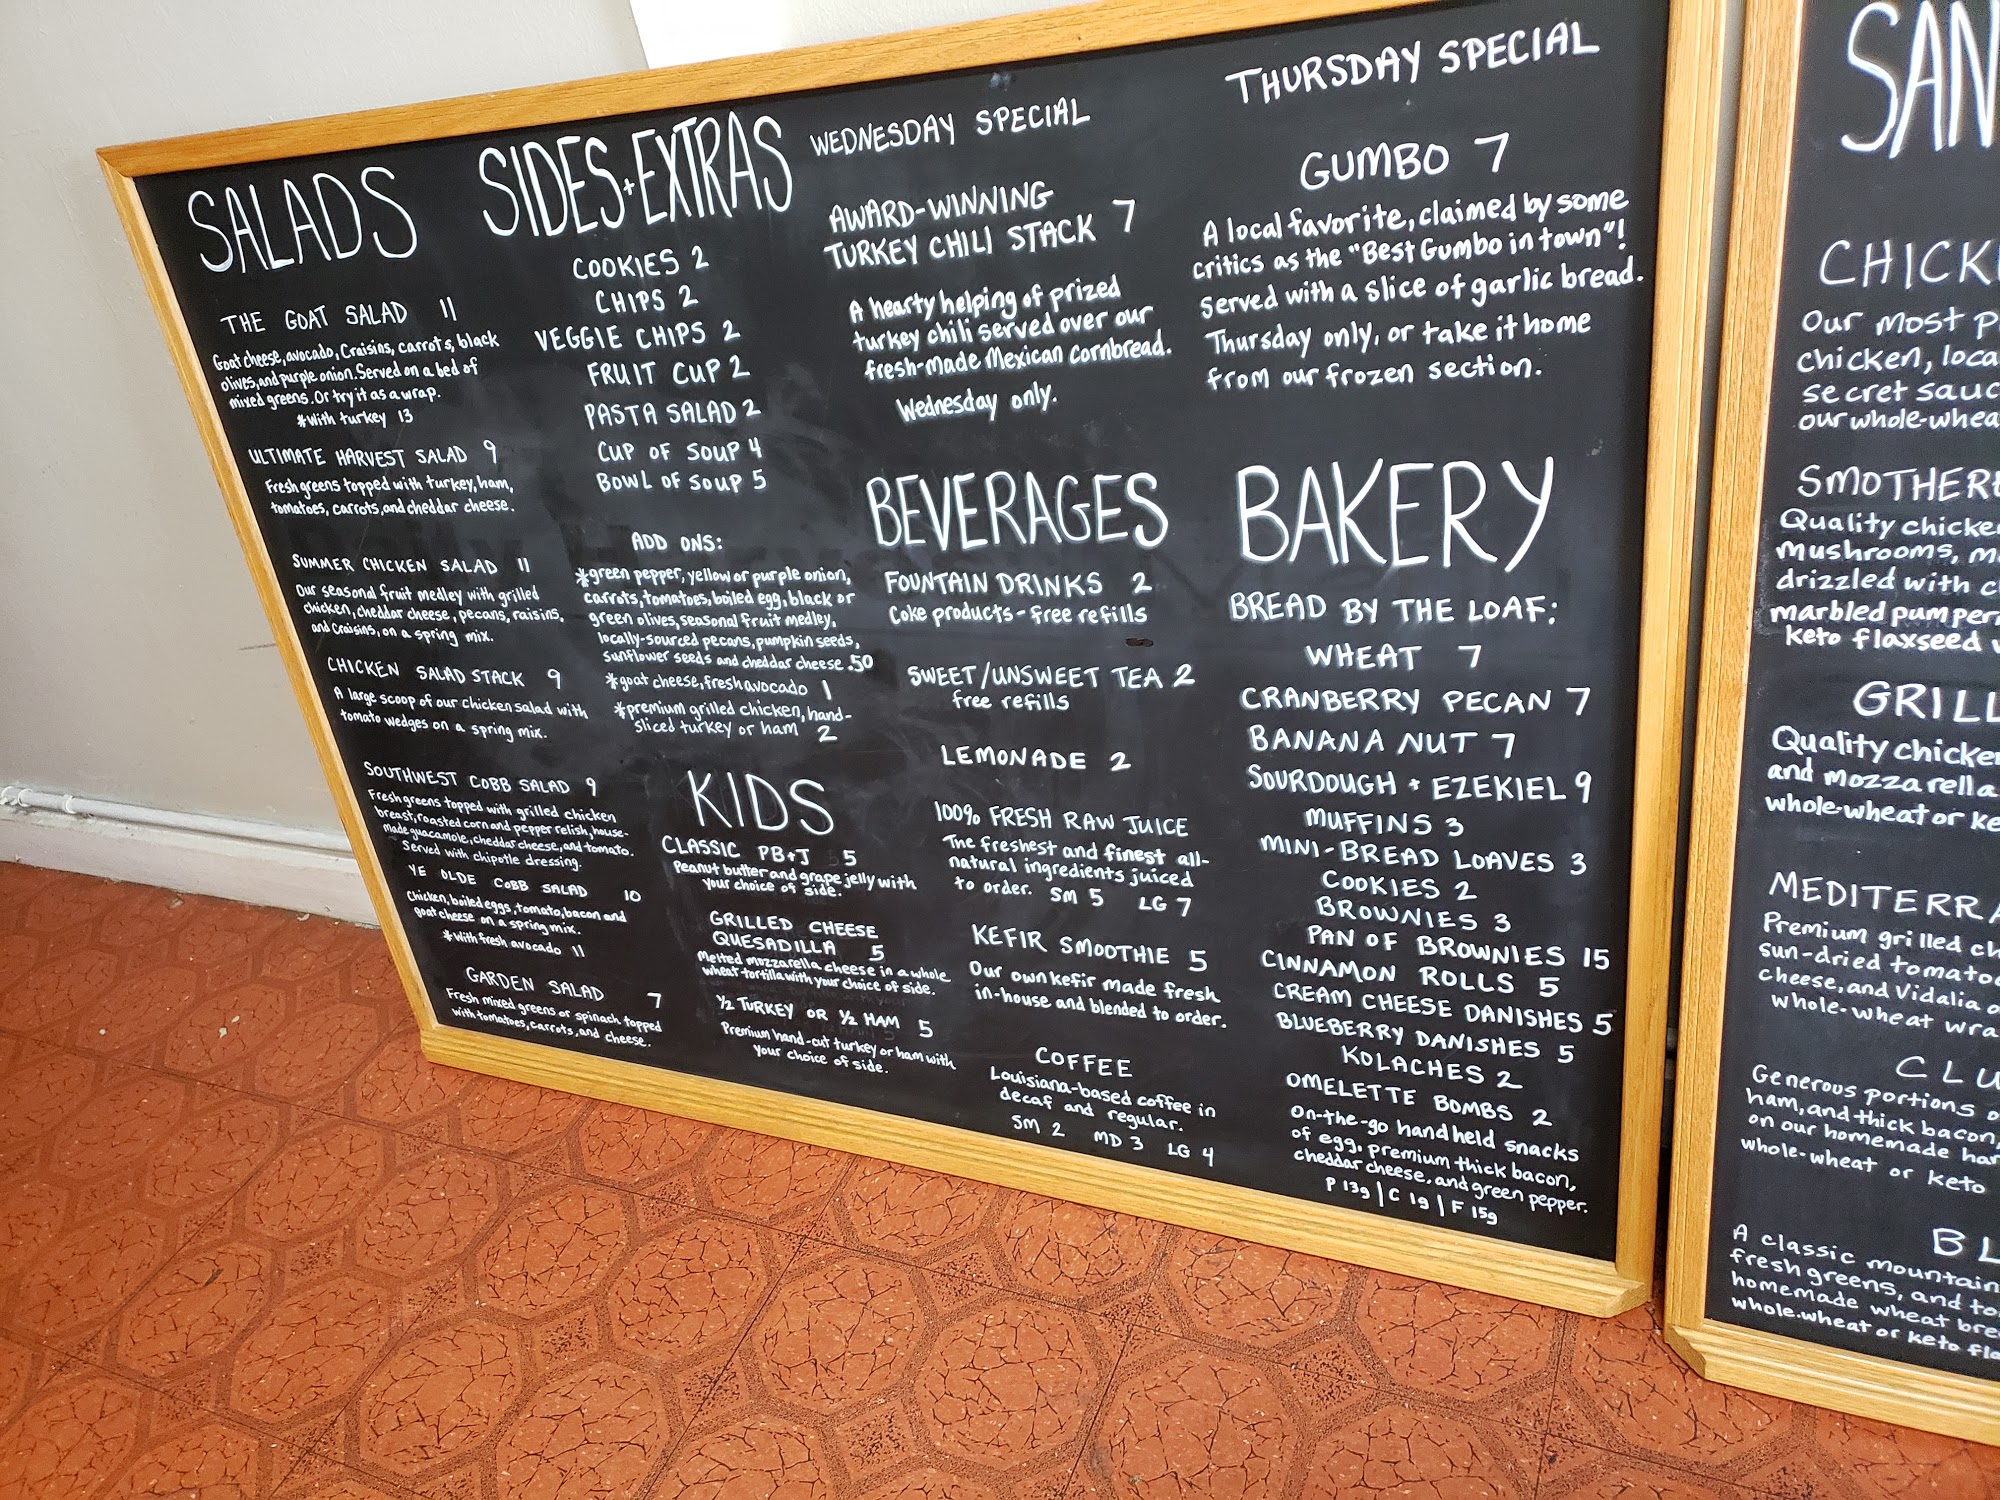 SALADS
THE GOAT SALAD 11
Goat cheese, avocado, Craisins, carrots, black
olives, and purple onion. Served on a bed of
mixed greens. Or try it as a wrap.
*with turkey 13
ULTIMATE HARVEST SALAD 9
Fresh greens topped with turkey, ham,
tomatoes, carrots, and cheddar cheese.
SUMMER CHICKEN SALAD 11
Our seasonal fruit medley with grilled
chicken, cheddar cheese, pecans, raisins,
and Craisins, on a spring mix.
CHICKEN SALAD STACK 9
A large scoop of our chicken salad with
tomato wedges on a spring mix.
SOUTHWEST COBB SALAD 9
Fresh greens topped with grilled chicken
breast, roasted corn and pepper relish, house-
made guacamole, cheddar cheese, and tomato.
Served with chipotle dressing.
YE OLDE COBB SALAD 10
Chicken, boiled eggs, tomato, bacon and
goat cheese on a spring mix.
*with fresh avocado 11
GARDEN SALAD 7
Fresh mixed greens or spinach topped
with tomatoes, carrots, and cheese.
SIDES + EXTRAS
COOKIES 2
CHIPS 2
VEGGIE CHIPS 2
FRUIT CUP 2
PASTA SALAD 2
CUP OF SOUP 4
BOWL OF SOUP 5
ADD ONS:
*green pepper, yellow or purple onion,
carrots, tomatoes, boiled egg, black or
green olives, seasonal fruit medley,
locally-sourced pecans, pumpkin seeds,
sunflower seeds and cheddar cheese .50
*goat cheese, fresh avocado 1
*premium grilled chicken, hand-
sliced turkey or ham 2
KIDS
CLASSIC PB+J 5
Peanut butter and grape jelly with
your choice of side.
GRILLED CHEESE
QUESADILLA 5
Melted mozzarella cheese in a whole
wheat tortilla with your choice of side.
½ TURKEY OR ½ HAM 5
Premium hand-cut turkey or ham with
your choice of side.
WEDNESDAY SPECIAL
AWARD-WINNING
TURKEY CHILI STACK 7
A hearty helping of prized
turkey chili served over our
fresh-made Mexican Cornbread.
Wednesday only.
BEVERAGES
FOUNTAIN DRINKS 2
Coke products - free refills
SWEET/UNSWEET TEA 2
free refills
LEMONADE 2
100% FRESH RAW JUICE
The freshest and finest all-
natural ingredients juiced
to order. SM 5 LG 7
KEFIR SMOOTHIE 5
Our own kefir made fresh
in-house and blended to order.
COFFEE
Louisiana-based coffee in
decaf and regular.
SM 2 MD 3 LG 4
THURSDAY SPECIAL
GUMBO 7
A local favorite, claimed by some
critics as the "Best Gumbo in town"!
Served with a slice of garlic bread.
Thursday only, or take it home
from our frozen section.
BAKERY
BREAD BY THE LOAF:
WHEAT 7
CRANBERRY PECAN 7
BANANA NUT 7
SOURDOUGH + EZEKIEL 9
MUFFINS 3
MINI-BREAD LOAVES 3
COOKIES 2
BROWNIES 3
PAN OF BROWNIES 15
CINNAMON ROLLS 5
CREAM CHEESE DANISHES 5
BLUEBERRY DANISHES 5
KOLACHES 2
OMELETTE BOMBS 2
On-the-go handheld snacks
of egg, premium thick bacon,
cheddar cheese, and green pepper.
P 13g | C 1g | F 15g
SAN
CHICK
Our most p
chicken, loca
secret sauc
our whole-whea
SMOTHER
Quality chicke
mushrooms, m
drizzled with c
marbled pumper
keto flaxseed
GRILL
Quality chicke
and mozzarella
whole-wheat or ke
MEDITERRA
Premium grilled ch
sun-dried tomato
cheese, and Vidalia o
whole-wheat wra
CLU
Generous portions o
ham, and thick bacon,
on our homemade har
whole-wheat or keto
BL
A classic mountain
fresh greens, and to
homemade wheat bre
whole-wheat or keto fla